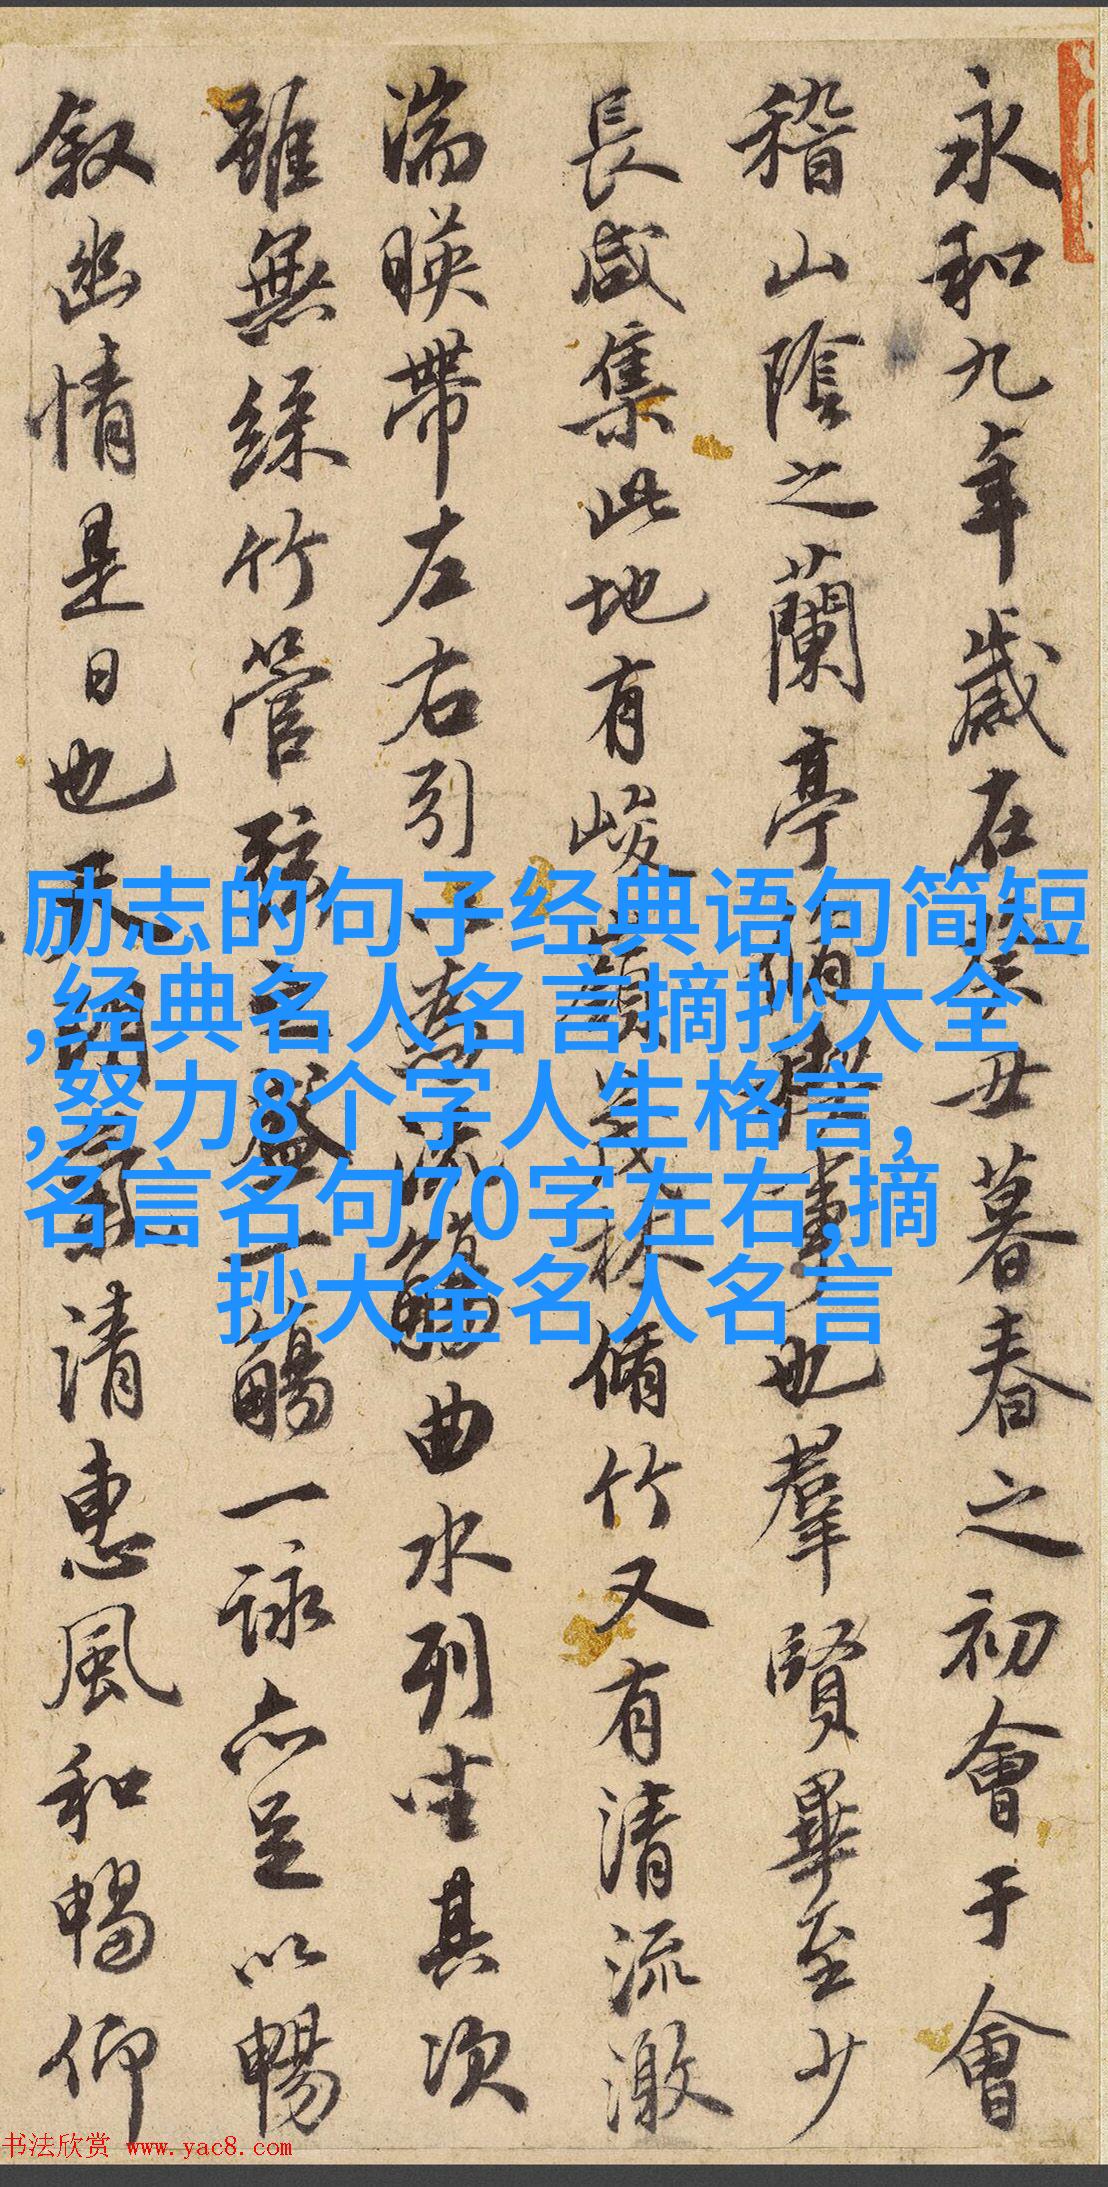 永和九年歲在癸丑暮春之初會于會
稽山陰之蘭亭脩禊事也羣賢畢至少
長咸集此地有峻領茂林脩竹又有清流激
湍暎帶左右引以為流觴曲水列坐其次
雖無絲竹管弦之盛一觴一詠亦足以暢
叙幽情是日也天朗氣清惠風和暢仰
励志的句子经典语句简短
,经典名人名言摘抄大全
,努力8个字人生格言,
名言名句70字左右,摘
抄大全名人名言
书法欣赏 www.yac8.com